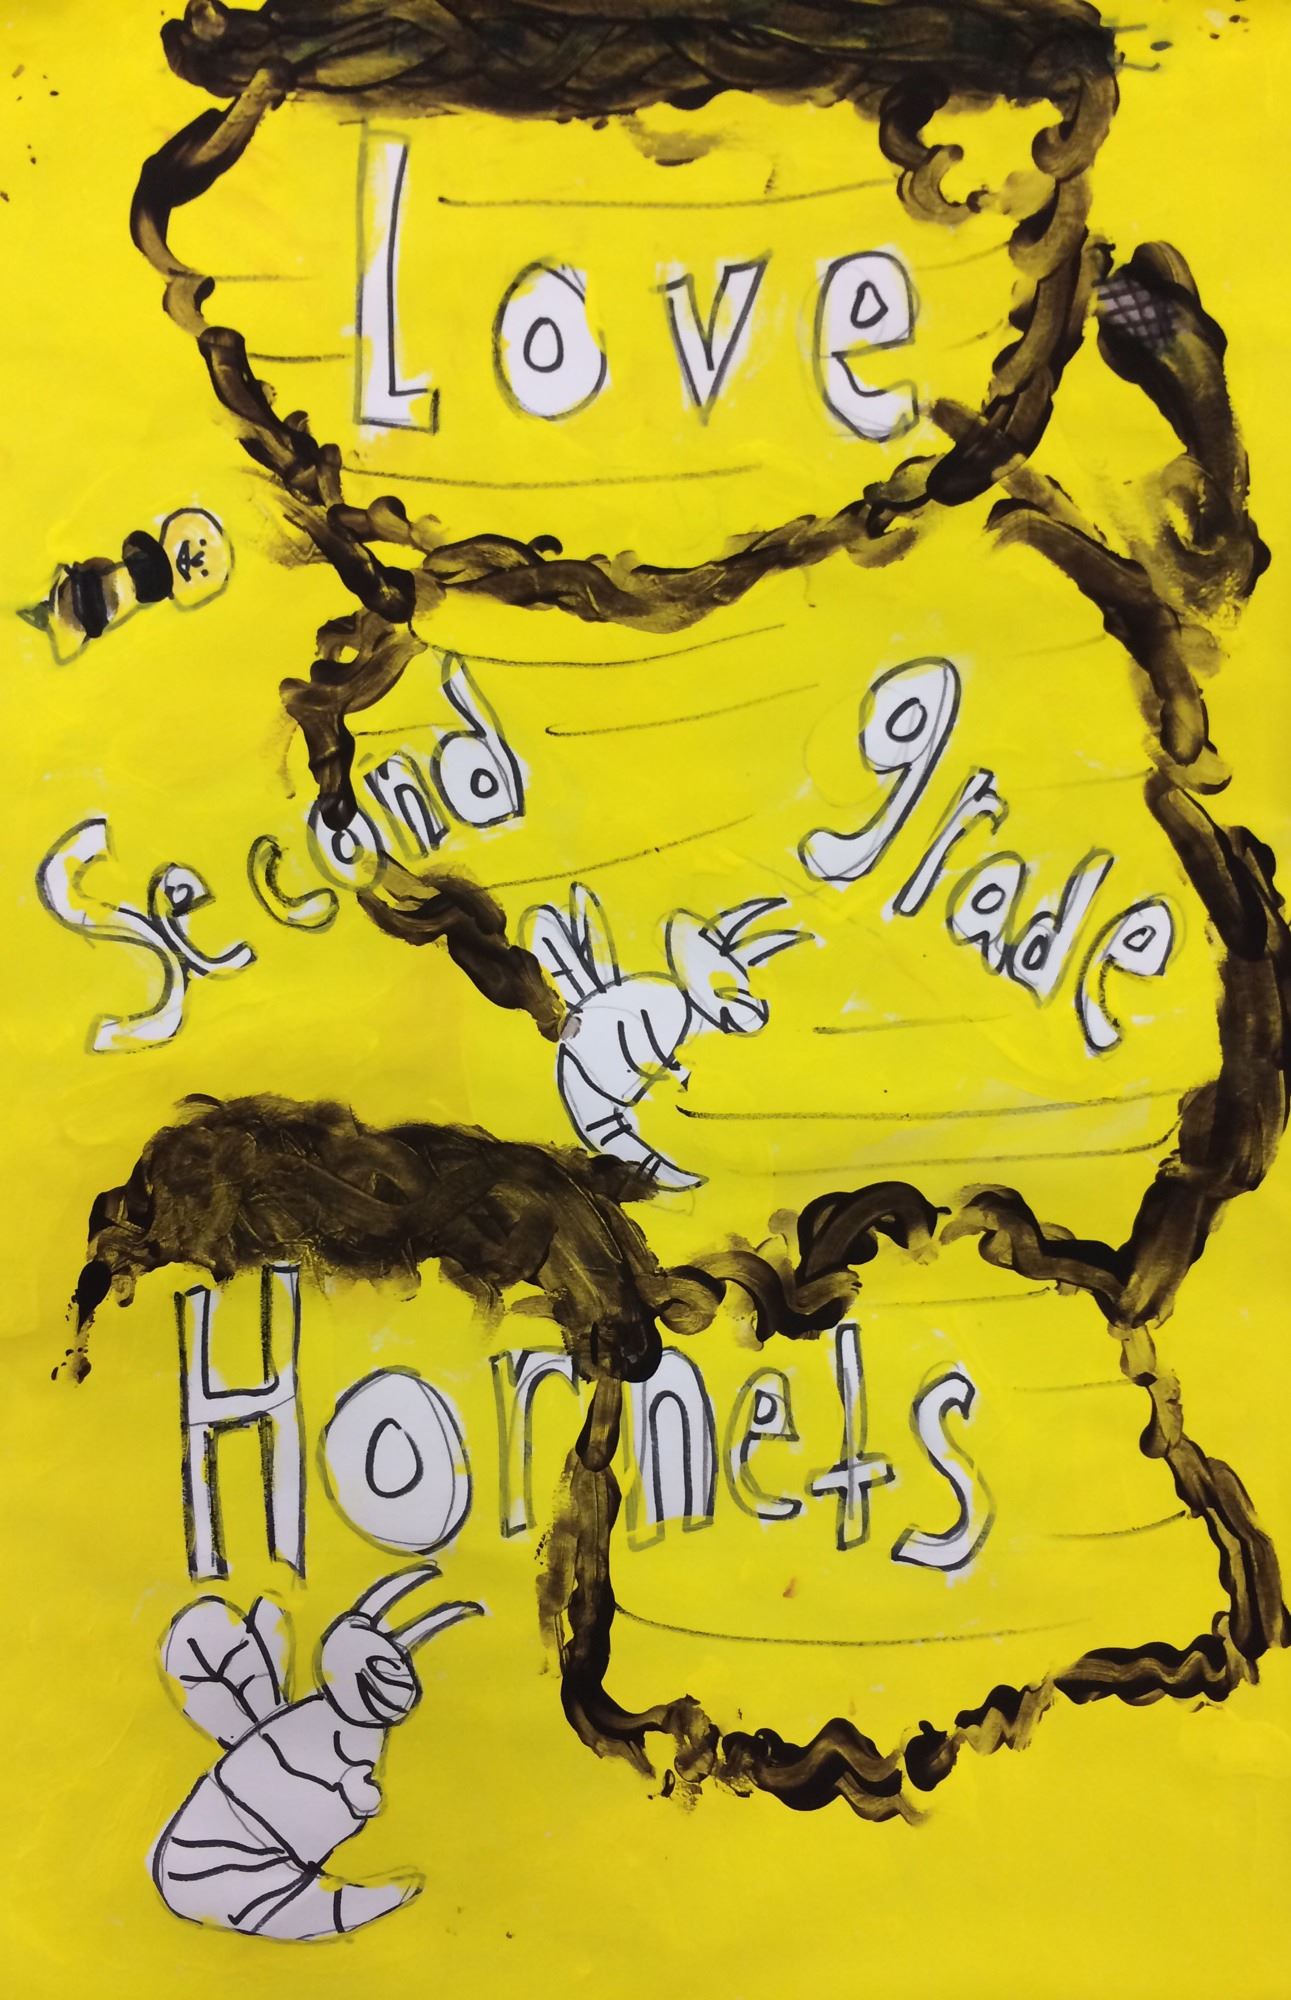 Love
Second grade
Hornets